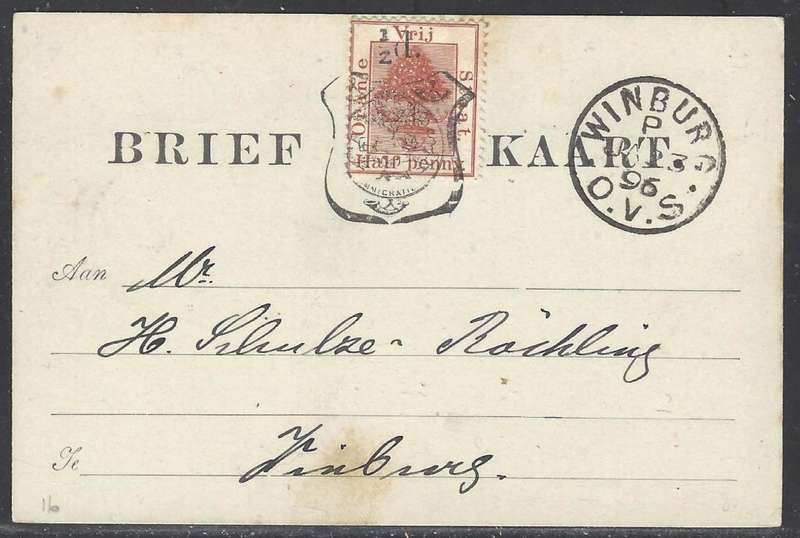 Vrij
½d.
Oranje Staat
Half penny
BRIEF KAART
WINBURG
P
3
96
O.V.S.
Aan Mr.
H. Schulze-Röchling
Te Winburg.
16